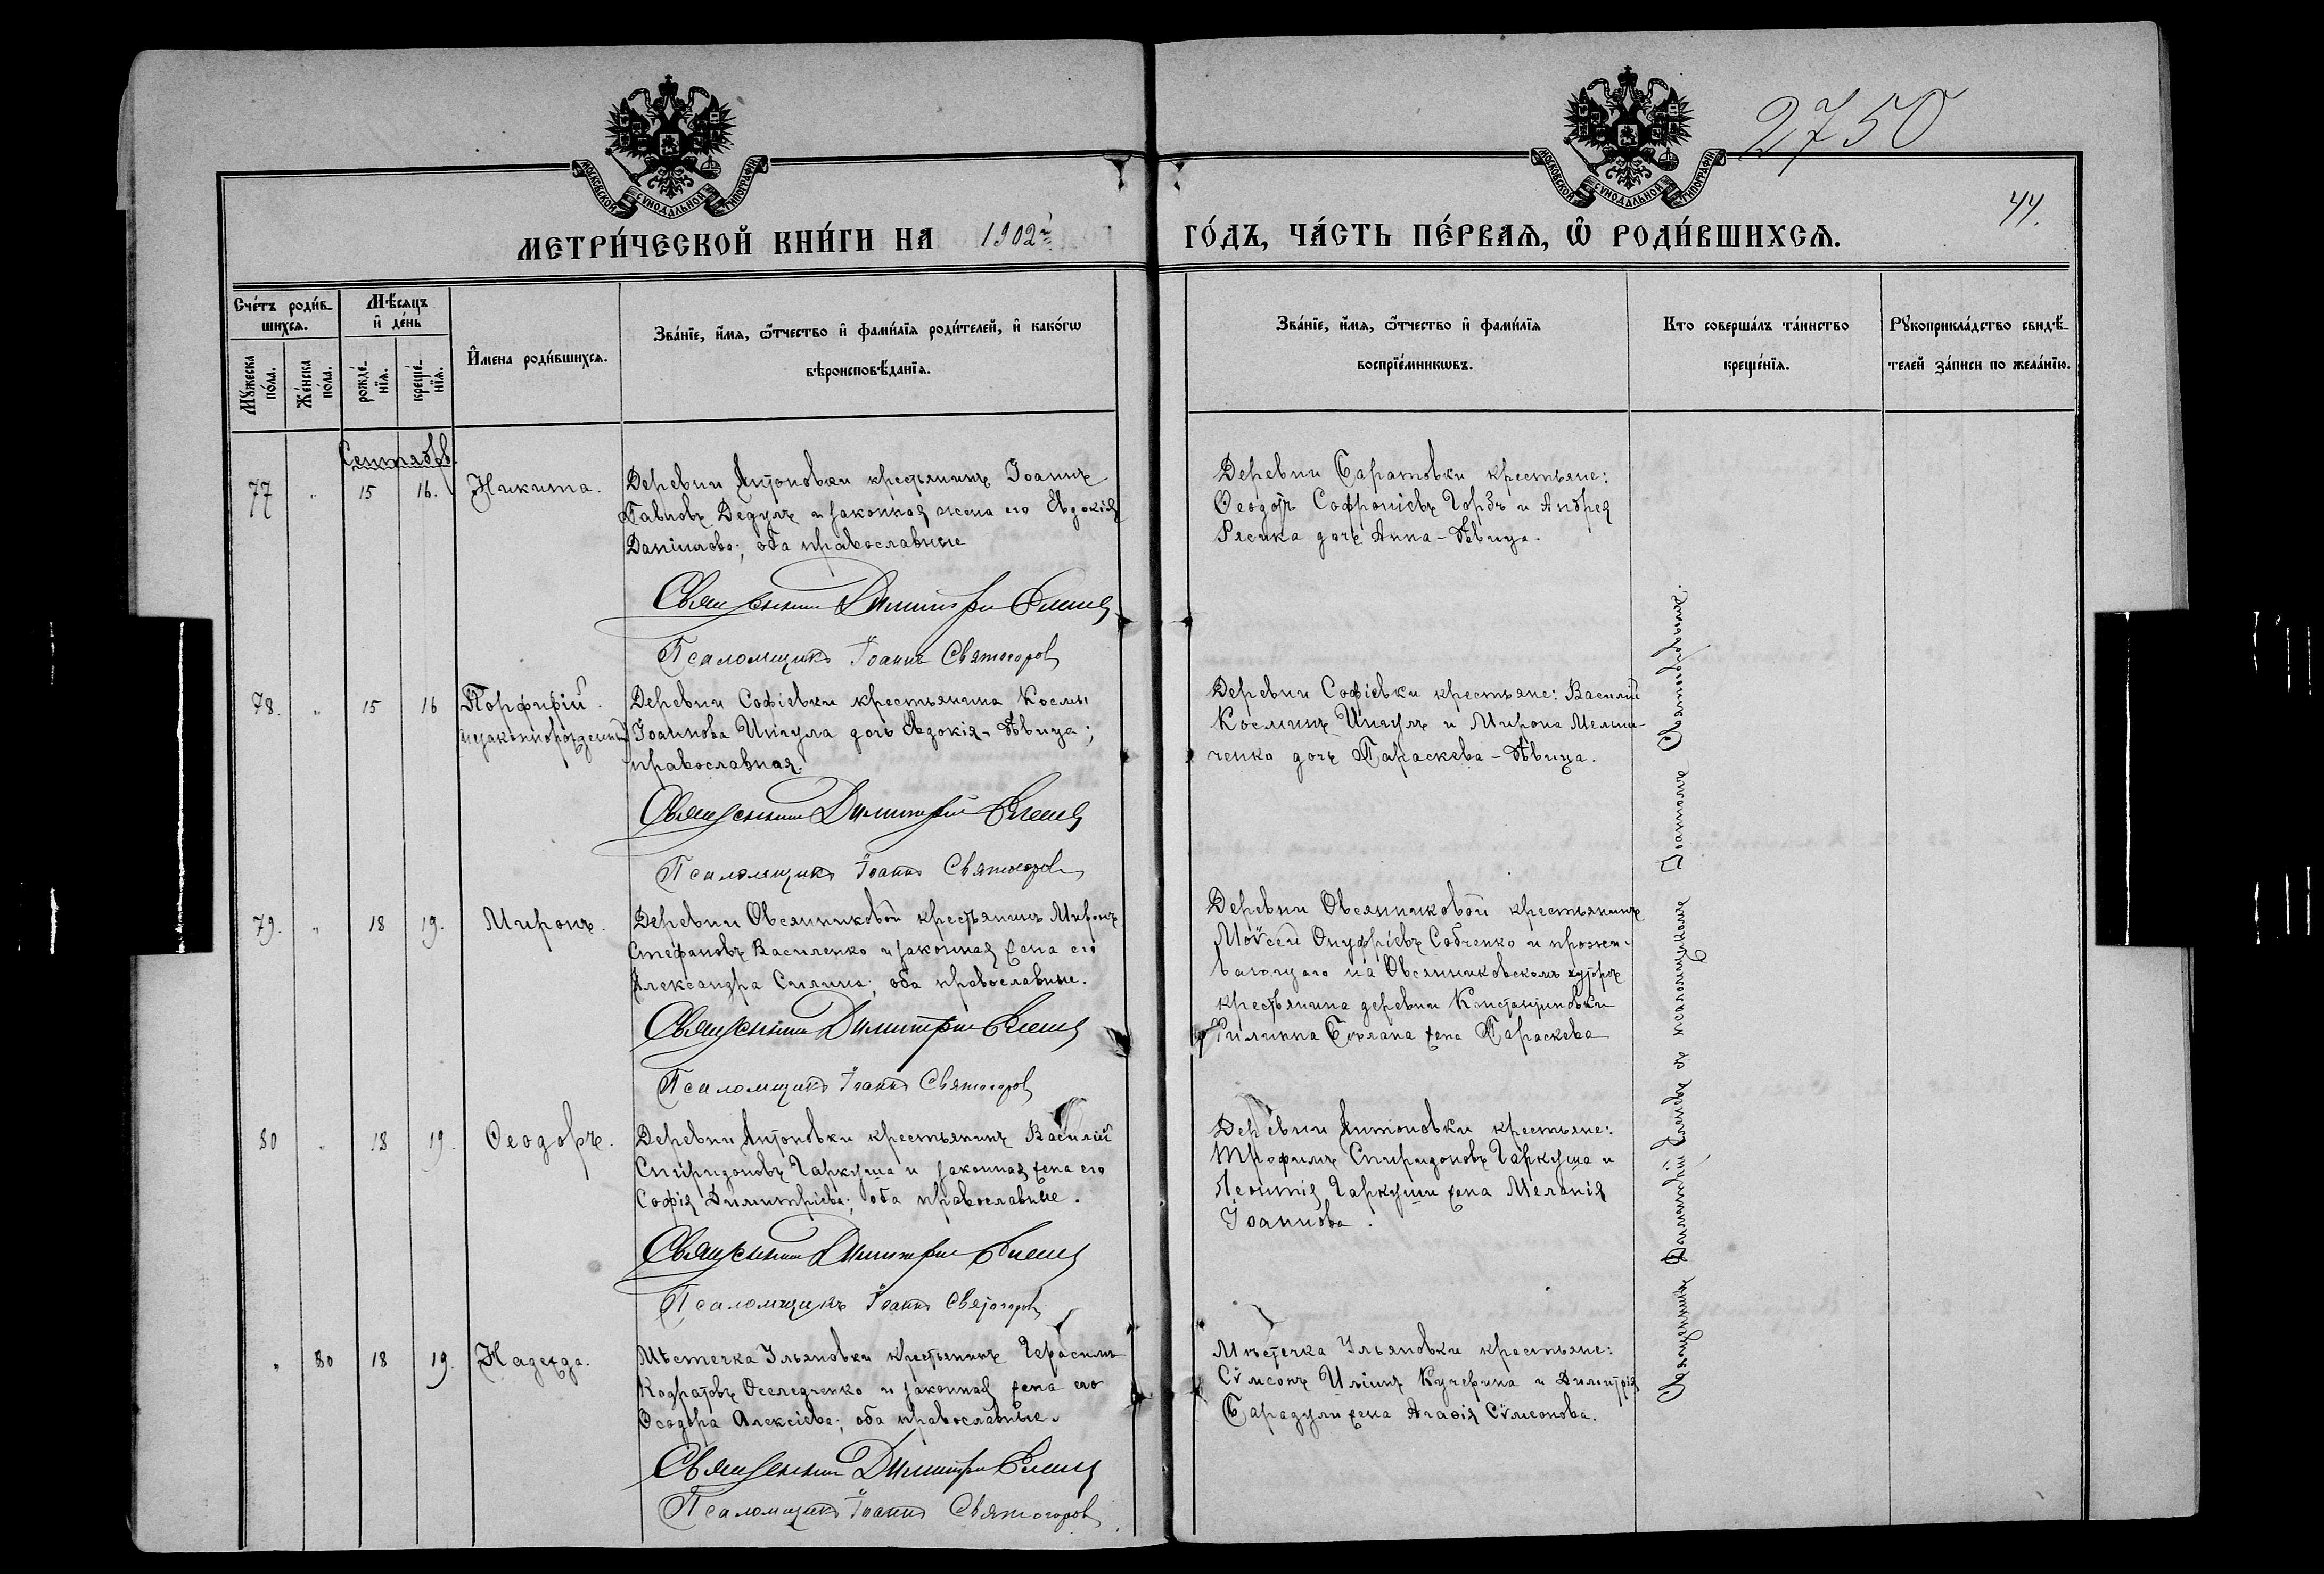 МОСКОВСКОЙ СѴНОДАЛЬНОЙ ТИПОГРАФІИ
МОСКОВСКОЙ СѴНОДАЛЬНОЙ ТИПОГРАФІИ
2750
44.
МЕТРИ́ЧЕСКОЙ КНИ́ГИ НА 1902 г. ГО́ДЪ, ЧА́СТЬ ПЕ́РВАѦ, Ѡ҆ РОДИ́ВШИХСѦ.
Сче́тъ роди́в-
шихсѧ.
Мꙋ́жеска по́ла.
Же́нска по́ла.
Мѣ́сѧцъ
и҆ де́нь
рожде́-
нїѧ.
креще́-
нїѧ.
И҆мена роди́вшихсѧ.
Зва́нїе, и҆́мѧ, ѻ҆́тчество и҆ фами́лїѧ роди́телей, и҆ како́гѡ
вѣроисповѣ́данїѧ.
Зва́нїе, и҆́мѧ, ѻ҆́тчество и҆ фами́лїѧ
воспрїе́мникѡвъ.
Кто соверша́лъ та́инство
креще́нїѧ.
Рꙋкоприкла́дство свидѣ́-
телей за́писи по жела́нїю.
Сентябрь.
77 " 15 16. Никита.
Деревни Антоновки крестьянинъ Іоаннъ
Павловъ Дедулъ и законная жена его Евдокія
Даніилова; оба православные
Священникъ Димитрій
Псаломщикъ Іоаннъ Святогоровъ
Деревни Саратовки крестьяне:
Ѳеодоръ Софроніевъ и Андрея
дочь Анна - дѣвица.
78. " 15 16 Порфирій.
незаконнорожденный
Деревни Софіевки крестьянина Космы
Іоаннова Шигула дочь Евдокія - дѣвица;
православная.
Священникъ Димитрій
Псаломщикъ Іоаннъ Святогоровъ
Деревни Софіевки крестьяне: Василій
Косминъ Шигулъ и Мирона Мельни-
ченко дочь Параскева - дѣвица.
79. " 18 19. Миронъ.
Деревни Овсянниковой крестьянинъ Миронъ
Стефановъ Василенко и законная жена его
Александра Силина; оба православные.
Священникъ Димитрій
Псаломщикъ Іоаннъ Святогоровъ
Деревни Овсянниковой крестьянинъ
Моѵсей Онуфріевъ Собченко и прожи-
вающаго на Овсянниковскомъ хуторѣ
крестьянина деревни Константиновки
Филиппа жена Параскева
80 " 18 19. Ѳеодоръ.
Деревни Антоновки крестьянинъ Василій
Спиридоновъ Гаркуша и законная жена его
Софія Димитріева; оба православные.
Священникъ Димитрій
Псаломщикъ Іоаннъ Святогоровъ
Деревни Антоновки крестьяне:
Трофимъ Спиридоновъ Гаркуша и
Леонтія Гаркуши жена Меланія
Іоаннова.
" 80 18 19. Надежда.
Мѣстечка Ульяновки крестьянинъ Герасимъ
Кодратовъ Оселедченко и законная жена его
Ѳеодора Алексіева; оба православные.
Священникъ Димитрій
Псаломщикъ Іоаннъ Святогоровъ
Мѣстечка Ульяновки крестьяне:
Сѵмеонъ Иліинъ Кучерина и Димитрія
жена Агаѳія Сѵмеонова.
Священникъ Димитрій съ псаломщикомъ Іоанномъ Святогоровымъ.